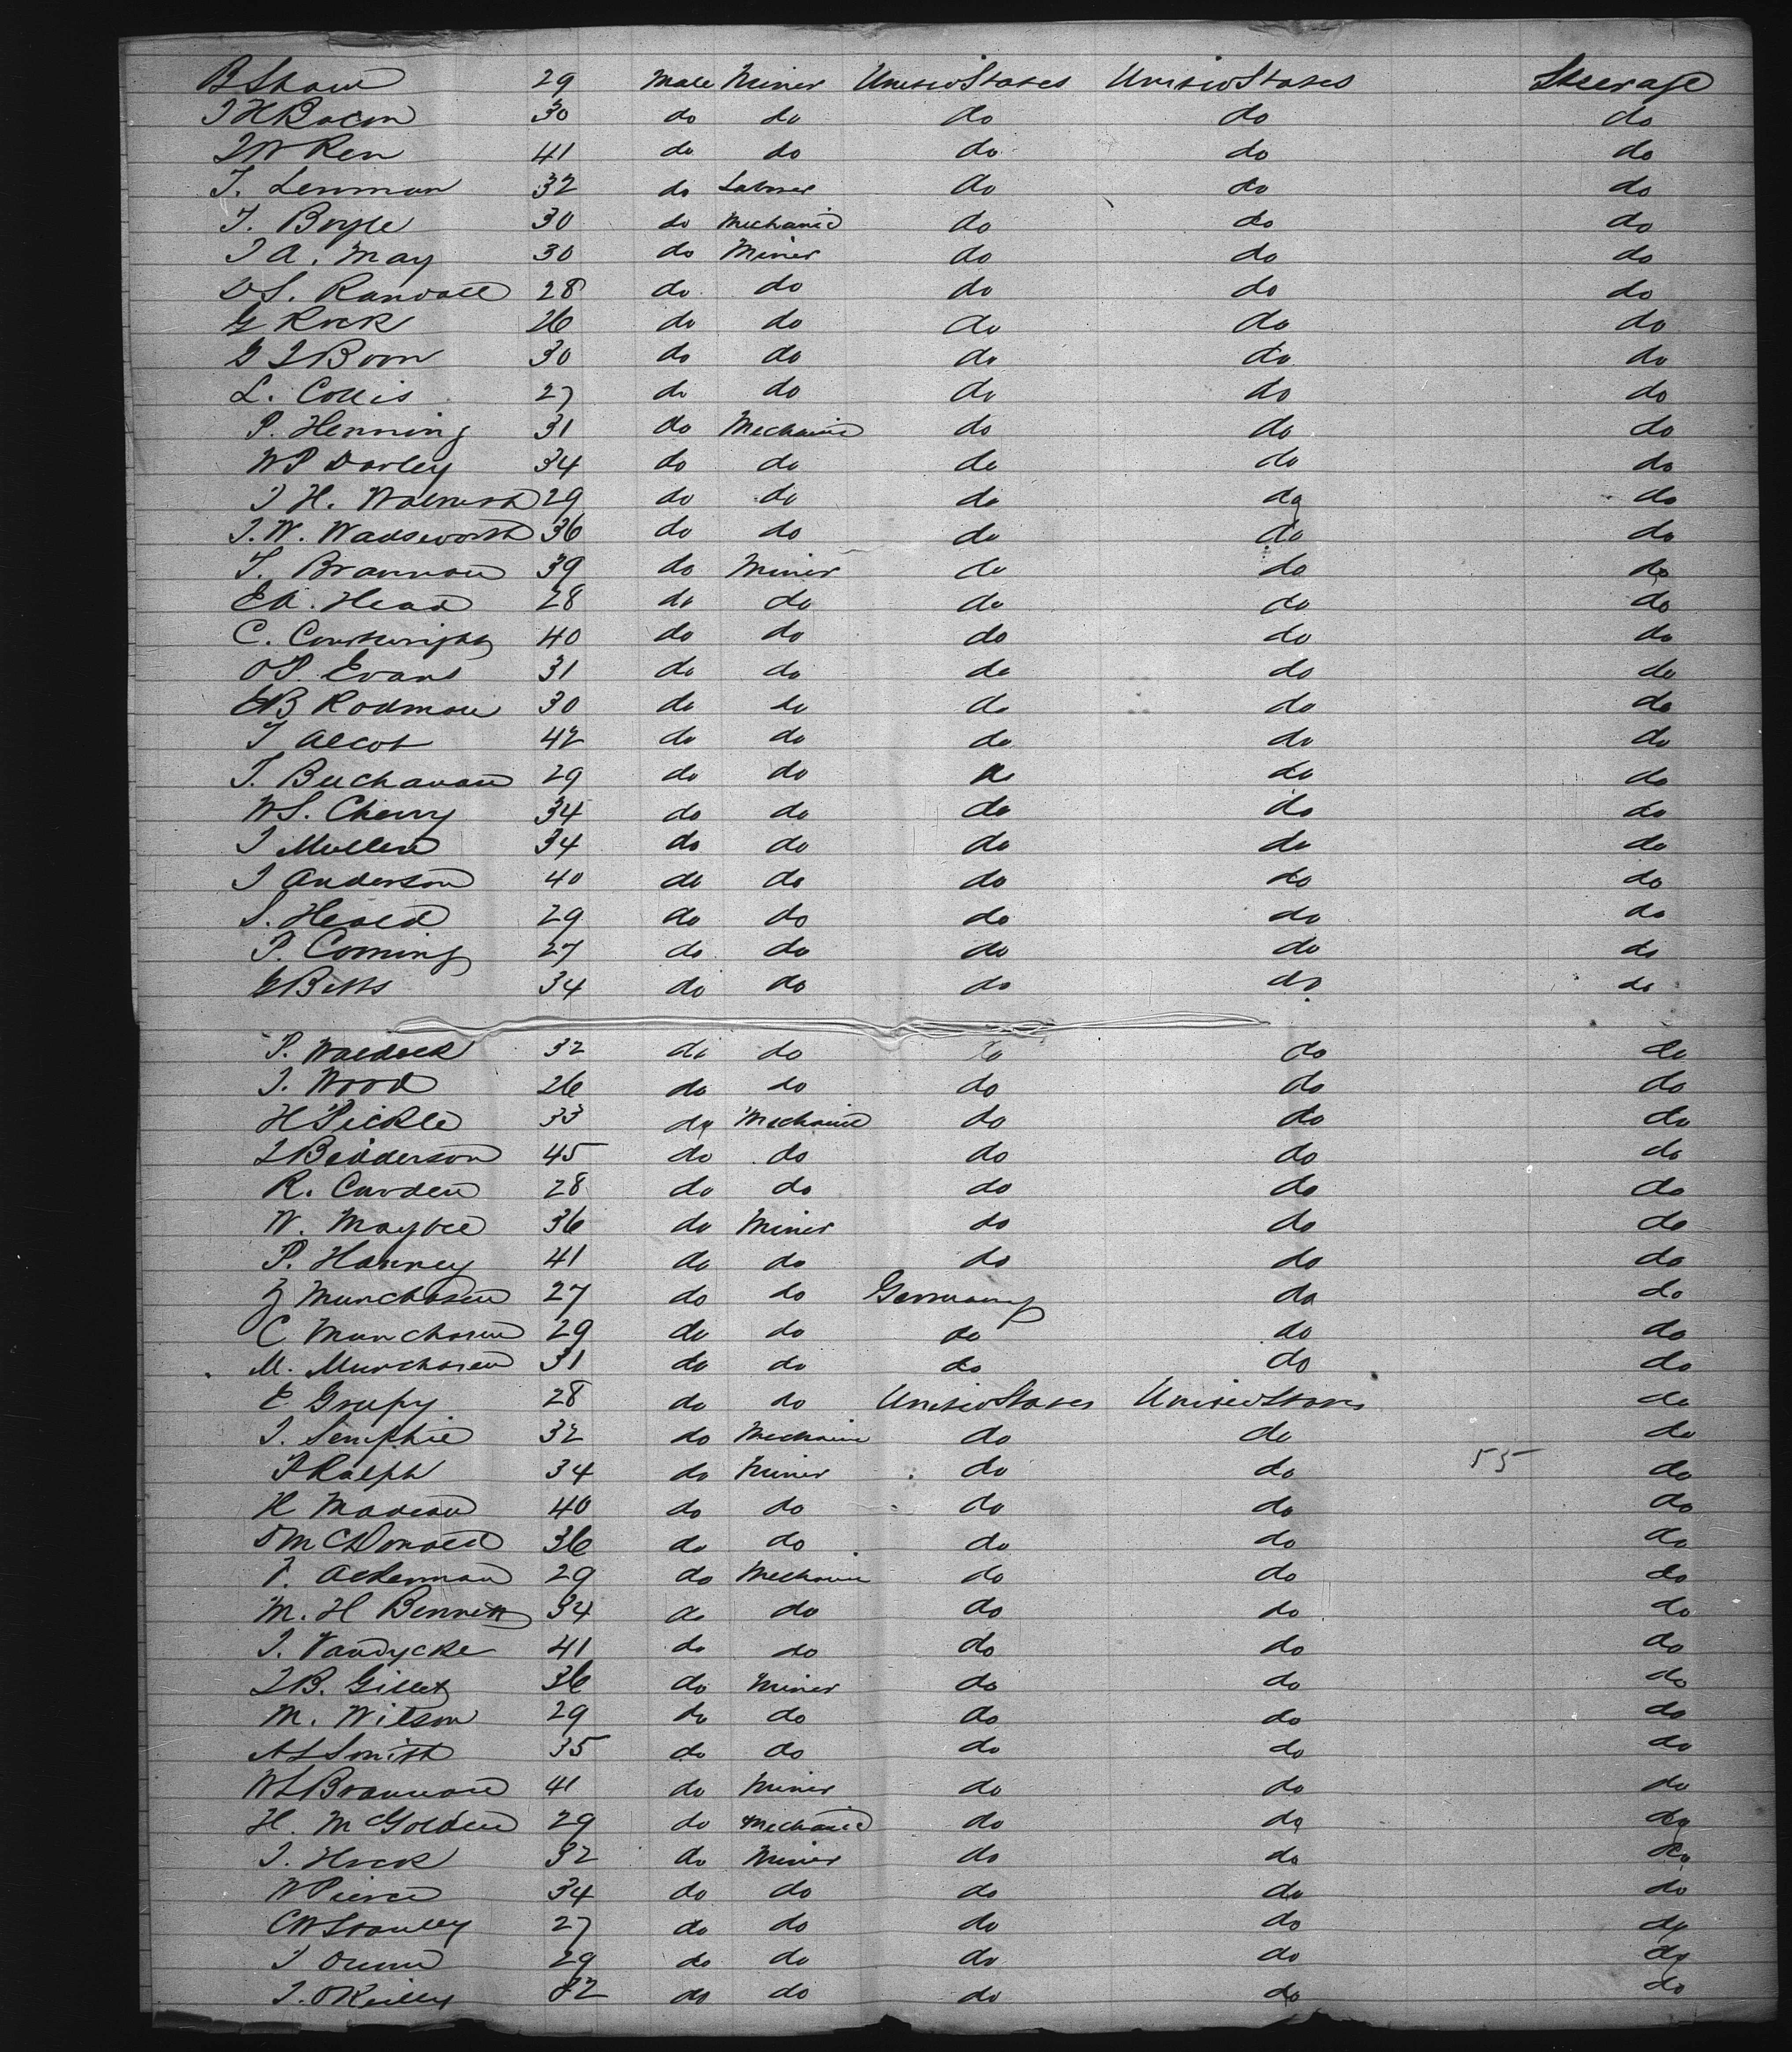 B Shaw 29 Male Miner United States United States Steerage
J H Bacon 30 do do do do do
J W Ren 41 do do do do do
J. Lenman 32 do Laborer do do do
T. Boyle 30 do Mechanic do do do
J A. May 30 do Miner do do do
D S. Randall 28 do do do do do
G Rock 26 do do do do do
G J Boon 30 do do do do do
L. Collis 27 do do do do do
P. Henning 31 do Mechanic do do do
W P Darley 34 do do do do do
J H. 29 do do do do do
J. W. Wadsworth 36 do do do do do
T. Brannan 39 do Miner do do do
E A. Head 28 do do do do do
C. Courtwright 40 do do do do do
O P. Evans 31 do do do do do
E B Rodman 30 do do do do do
T Alcot 42 do do do do do
J. Buchanan 29 do do do do do
W S. Cherry 34 do do do do do
J Mullen 34 do do do do do
J Anderson 40 do do do do do
S. Herold 29 do do do do do
P. Corning 27 do do do do do
G Betts 34 do do do do do
P. Waldock 32 do do do do do
J. Wood 26 do do do do do
H Pickle 33 do Mechanic do do do
J Bedderson 45 do do do do do
R. Carden 28 do do do do do
W. Maybee 36 do Miner do do do
P. Hanney 41 do do do do do
Z Munchosen 27 do do Germany do do
C Munchosen 29 do do do do do
M. Munchosen 31 do do do do do
E Grupy 28 do do United States United States do
J. Semphie 32 do Mechanic do do do
P Ralph 34 do Miner do do 55 do
H Madean 40 do do do do do
McDonald 36 do do do do do
Ackerman 29 do Mechanic do do do
M. H Bennett 34 do do do do do
J. Vandycke 41 do do do do do
J B. Gillet 36 do Miner do do do
M. Wilson 29 do do do do do
A L Smith 35 do do do do do
W L Brannan 41 do Miner do do do
H. McGolden 29 do Mechanic do do do
J. Hock 32 do Miner do do do
W Pierce 34 do do do do do
C W Stanley 27 do do do do do
J Dunn 29 do do do do do
J. O'Reilly 32 do do do do do